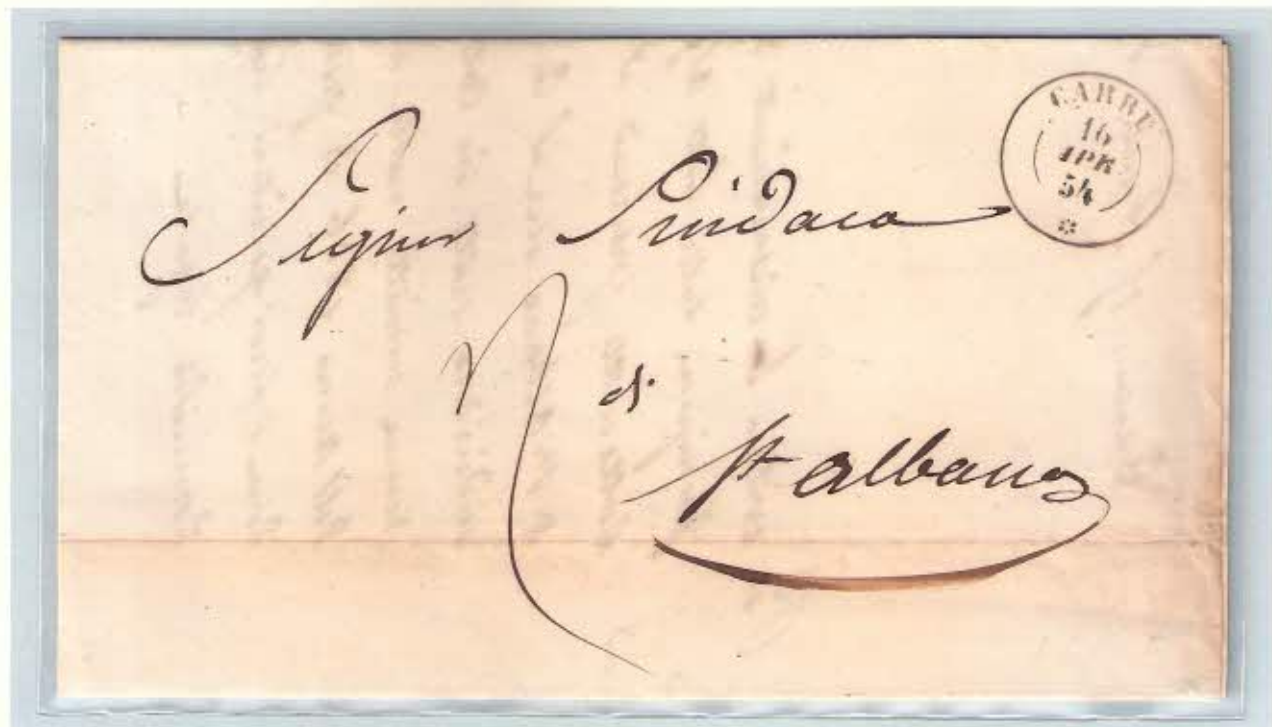 16
APR
54
Signor Sindaco
di
St Albano